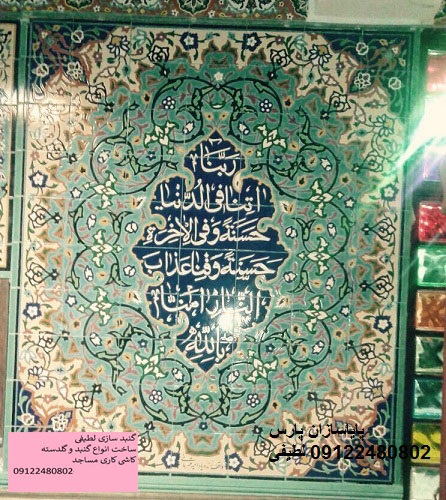 ربنا
اتنا فی الدنیا
حسنة و فی الاخرة
حسنة و قنا عذاب
النار امنا
بالله
پایاسازان پارس
09122480802 لطیفی
گنبد سازی لطیفی
ساخت انواع گنبد و گلدسته
کاشی کاری مساجد
09122480802